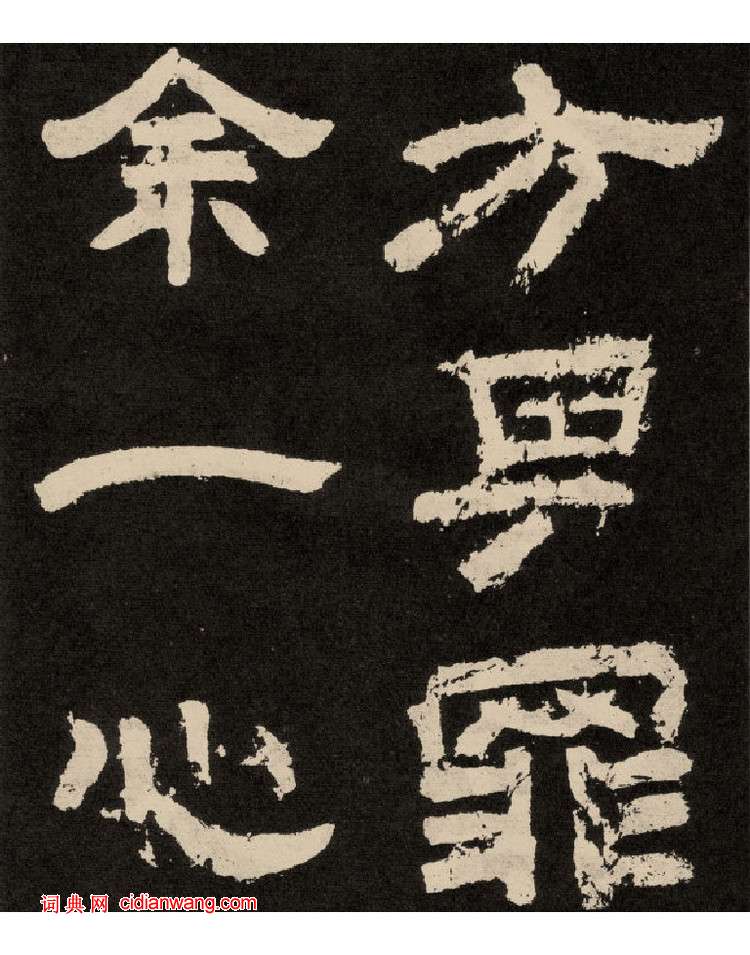 方其罪
余一心
词典网 cidianwang.com